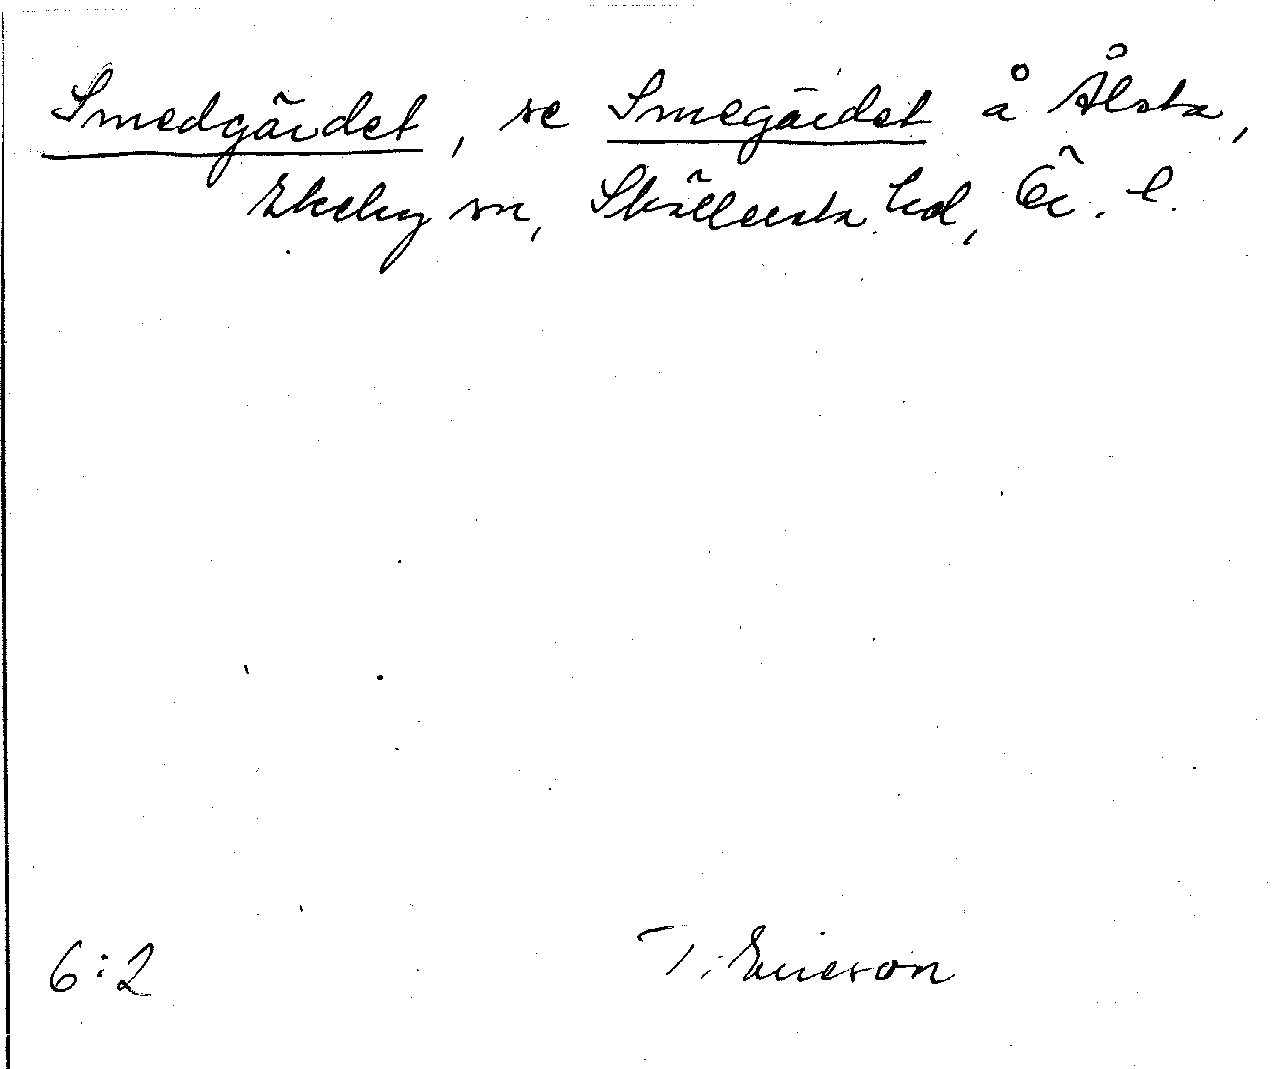 Smedgärdet, se Smegärdet å Ålsta,
Ekeby sn, Sköllersta hd, Ör. l.
6:2 T. Ericson